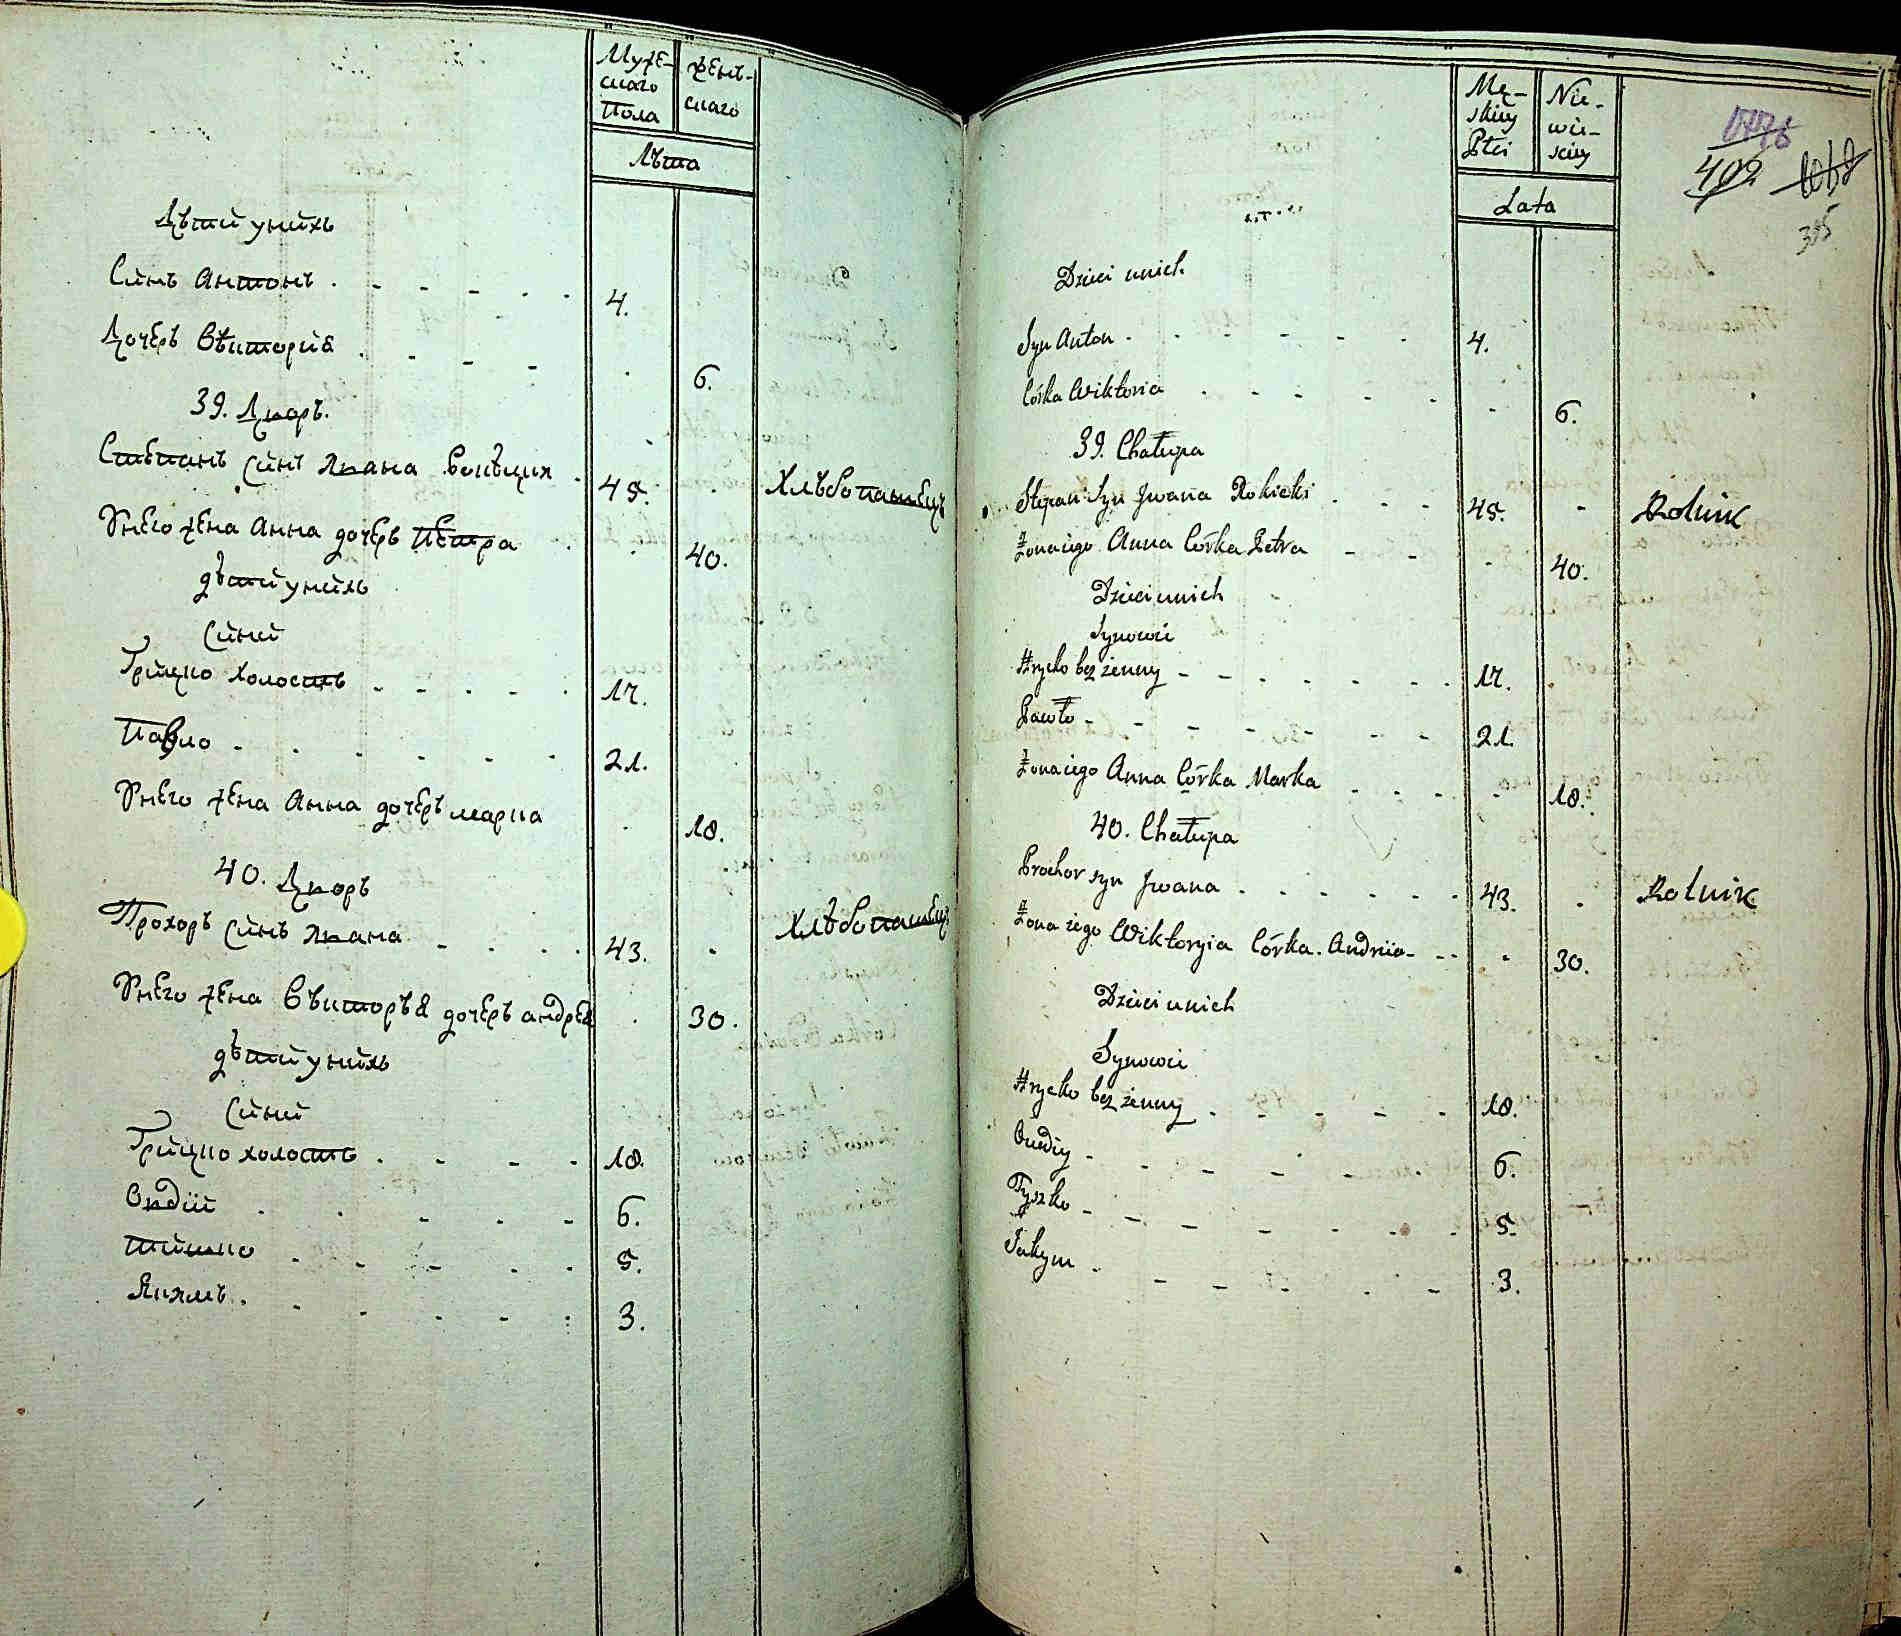 Муже-
скаго
Пола
Жень-
скаго
Лѣта
Дѣтий унихъ
Синъ Антонъ 4.
Дочерь Вѣкториа 6.
39. Дворъ.
Степанъ Синъ Ивана 45. Хлѣбопашецъ
Унего жена Анна дочерь Петра 40.
дѣтий унихъ
Сини
Грицко холостъ 17.
Павло 21.
Унего жена Анна дочерь марка 18.
40. Дворъ
Прохоръ Синъ Ивана 43. Хлѣбопашецъ
Унего жена Вѣкторѣа дочерь андреа 30.
дѣтий унихъ
Сини
Грицко холостъ 18.
Овдій 6.
Тишко 5.
Якимъ 3.
Mę-
skiey
Płci
Nie-
wie-
skiey
Lata
1776
402
315
Dzieci unich
Syn Anton 4.
Córka Wiktoria 6.
39. Chałupa
Stepan Syn Jwana Rokicki 45. Rolnik
Żona iego Anna Córka Petra 40.
Dzieci unich
Synowie
Hrycko bez żenny 17.
Pawło 21.
Żona iego Anna Córka Marka 18.
40. Chałupa
Prochor syn Jwana 43. Rolnik
Żona iego Wiktoryia Córka Andriia 30.
Dzieci unich
Synowie
Hrycko bez żenny 18.
Owdiy 6.
Tyszko 5.
Jakym 3.